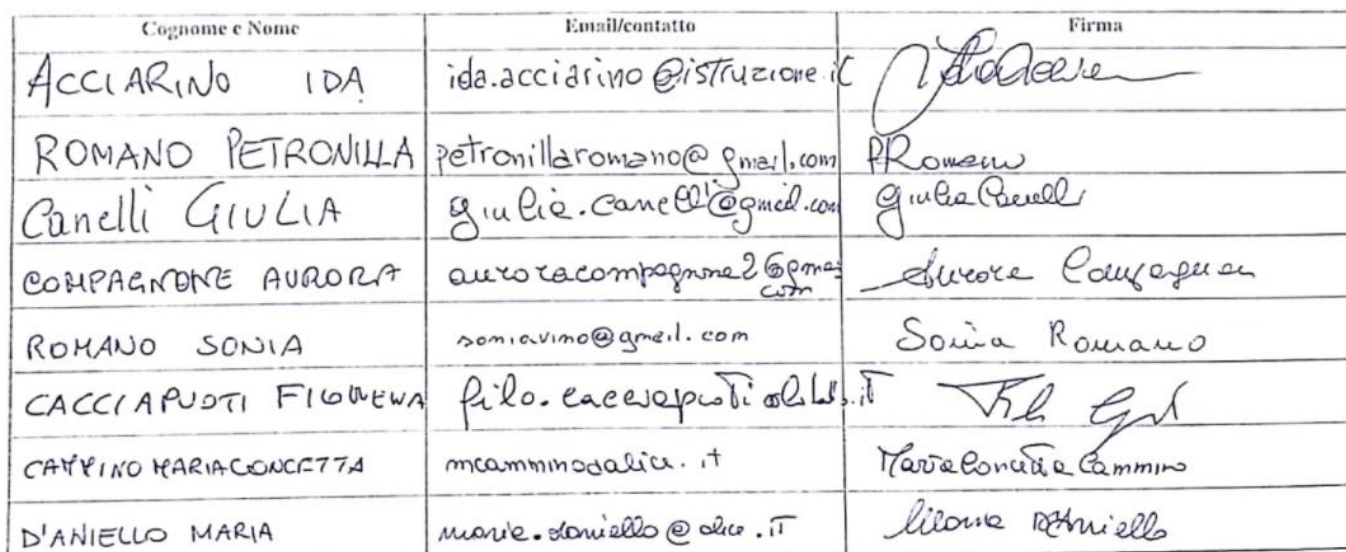 Cognome e Nome Email/contatto Firma
ACCIARINO IDA ida.acciarino@istruzione.it
ROMANO PETRONILLA petronillaromano@gmail.com PRomano
Canelli GIULIA giulia.canelli@gmail.com Giulia Canelli
COMPAGNONE AURORA auroracompagnone2@gmai Aurora Compagnon
com
ROMANO SONIA soniavino@gmail.com Sonia Romano
CACCIAPUOTI
CAMMINO MARIACONCETTA mcammino@alice.it Maria Concetta Cammino
D'ANIELLO MARIA maria.daniello@alice.it Maria D'Aniello